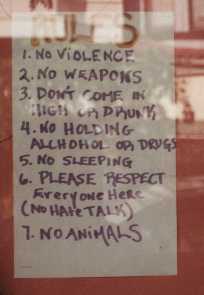 RULES
1. NO VIOLENCE
2. NO WEAPONS
3. DON'T COME IN
HIGH OR DRUNK
4. NO HOLDING
ALCHOHOL OR DRUGS
5. NO SLEEPING
6. PLEASE RESPECT
Everyone Here
(No Hate TALK)
7. NO ANIMALS